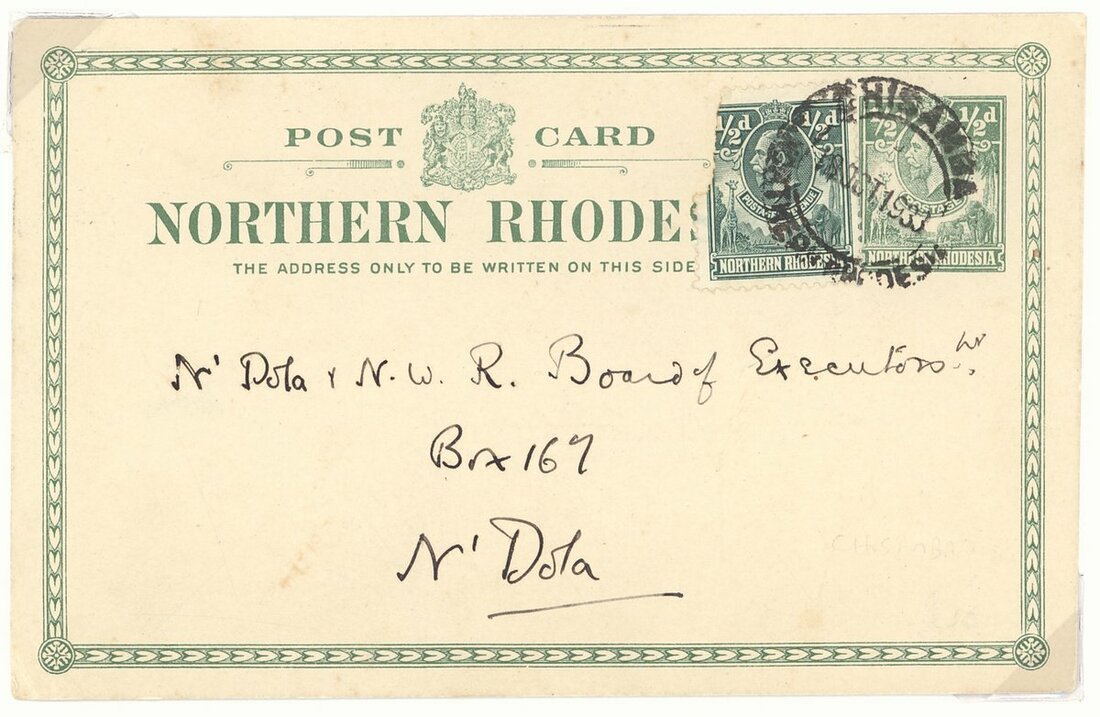 POST CARD
NORTHERN RHODES
THE ADDRESS ONLY TO BE WRITTEN ON THIS SIDE
½d ½d
POSTAGE
NORTHERN RHODESI
½ ½d
NORTHERN RHODESIA
CHISAMBA
OCT 1933
N' Dola & N.W. R. Board of Executors
Box 167
N' Dola